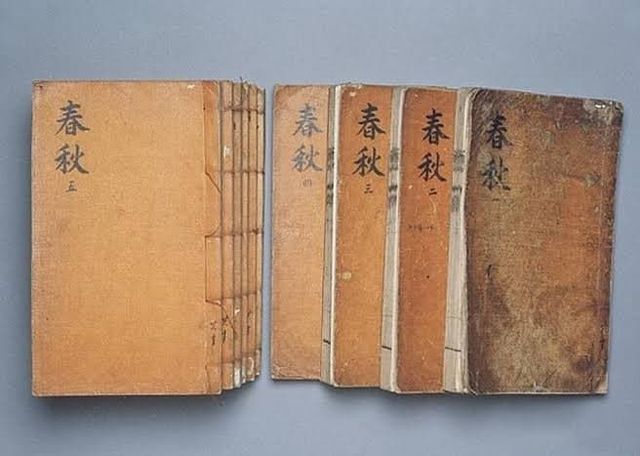 春秋一
春秋二
春秋三
春秋四
春秋五